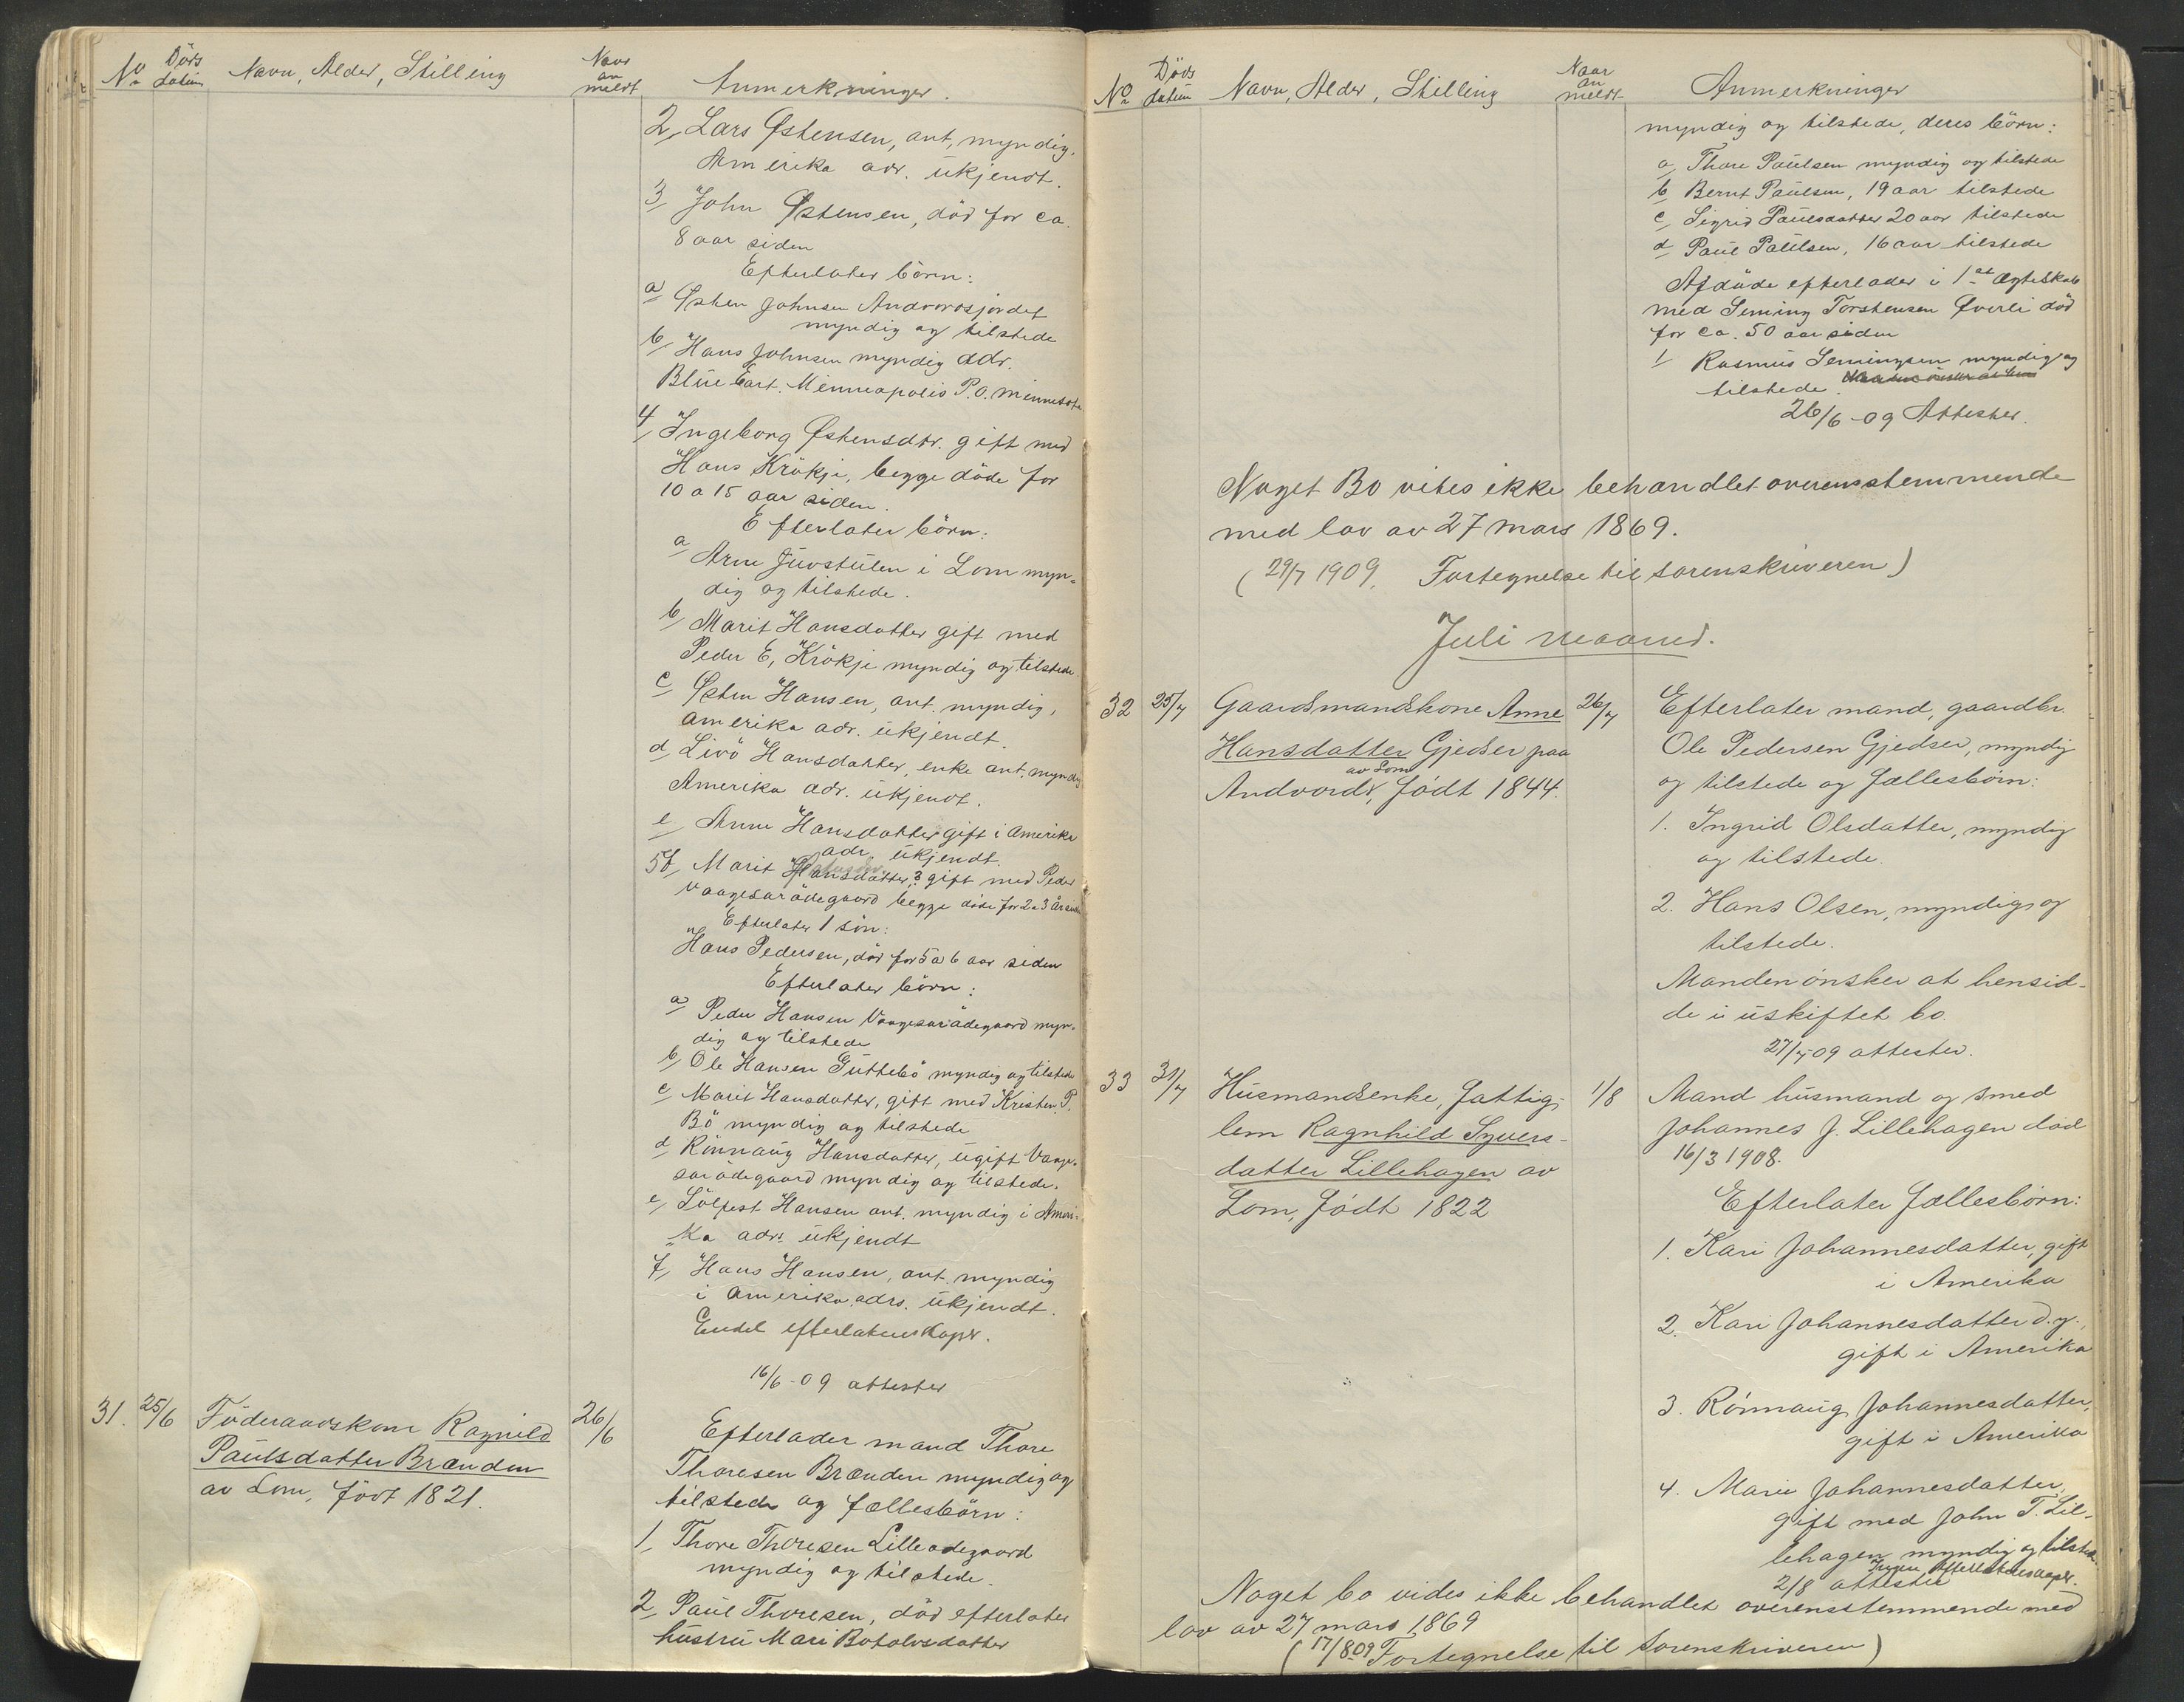 No Döds datum Navn, Alder, Stilling Naar an meldt Anmerkninger.
2, Lars Østensen, ant, myndig,
Amerika adr. ukjendt.
3, John Østensen, död for ca.
8 aar siden
Efterlater börn:
a, Østen Johnsen Andvordsjordet
myndig og tilstede
b, Hans Johnsen myndig addr.
Blue Eart. Minneapolis P.O. Minnesota
4, Ingeborg Østensdtr. gift med
Hans Krökje, begge döde for
10 a 15 aar siden.
Efterlater börn:
a, Arne Juvstulen i Lom myn-
dig og tilstede.
b, Marit Hansdatter gift med
Peder E, Krökje myndig og tilstede.
c, Østen Hansen, ant. myndig,
Amerika adr. ukjendt.
d, Livö Hansdatter, enke ant. myndig
Amerika adr. ukjendt.
e, Anne Hansdatter gift i Amerika
adr. ukjendt.
5, Marit Hansdatter, ? gift med Peder
Vaagesarödegaard begge döde for 2 a 3 år siden
Efterlater 1 sön:
Hans Pedersen, död for 5 a 6 aar siden
Efterlater börn:
a, Peder Hansen Vaagesarödegaard myn-
dig og tilstede
b, Ole Hansen Guttebö myndig og tilstede
c, Marit Hansdatter, gift med Kristen P.
Bö myndig og tilstede
d, Rönnaug Hansdatter, ugift Vaage-
sarödegaard myndig og tilstede.
e, Sölfest Hansen ant. myndig i Ameri-
ka adr. ukjendt
f, Hans Hansen, ant. myndig
i Amerika adrs. ukjendt.
Endel efterlatenskaper.
16/6-09 attester
31. 25/6 Föderaadskone Ragnild 26/6 Efterlader mand Thore
Paulsdatter Brænden Thoresen Brænden myndig og
av Lom, född 1821. tilstede og fællesbörn:
1, Thore Thoresen Lilleödegaard
myndig og tilstede.
2, Paul Thoresen, död efterlater
hustru Mari Botolvsdatter
No Döds datum Navn, Alder, Stilling Naar an meldt Anmerkninger
myndig og tilstede, deres börn:
a, Thore Paulsen myndig og tilstede
b, Bernt Paulsen, 19 aar tilstede
c, Sigrid Paulsdatter 20 aar tilstede
d, Paul Paulsen, 16 aar tilstede
Afdöde efterlader i 1ste Ægteskab
med Seming Torstensen Øverli död
for ca. 50 aar siden
1, Rasmus Semingsen myndig og
tilstede.
26/6-09 Attester.
Noget Bo vites ikke behandlet overensstemmende
med lov av 27 mars 1869.
(29/7 1909, Fortegnelse til sorenskriveren)
Juli maaned.
32 25/7 Gaardmandskone Anne 26/7 Efterlater mand, gaardbr.
Hansdatter Gjedser paa Ole Pedersen Gjedser, myndig
av Lom
Andvord, födt 1844. og tilstede og fællesbörn:
1. Ingrid Olsdatter, myndig
og tilstede.
2. Hans Olsen, myndig og
tilstede.
Manden önsker at hensid-
de i uskiftet bo.
27/7-09 attester.
33 31/7 Husmandsenke, fattig- 1/8 Mand husmand og smed
lem Ragnhild Syvers- Johannes J. Lillehagen död
datter Lillehagen av 16/3 1908.
Lom, födt 1822 Efterlater fællesbörn:
1. Kari Johannesdatter, gift
i Amerika
2. Kari Johannesdatter d.y.,
gift i Amerika
3. Rönnaug Johannesdatter,
gift i Amerika
4. Marie Johannesdatter,
gift med John T. Lil-
lehagen myndig og tilstede.
Ingen efterlatenskaper.
2/8 attester
Noget bo vides ikke behandlet overensstemmende med
lov av 27 mars 1869
(17/8 09 Fortegnelse til Sorenskriveren)